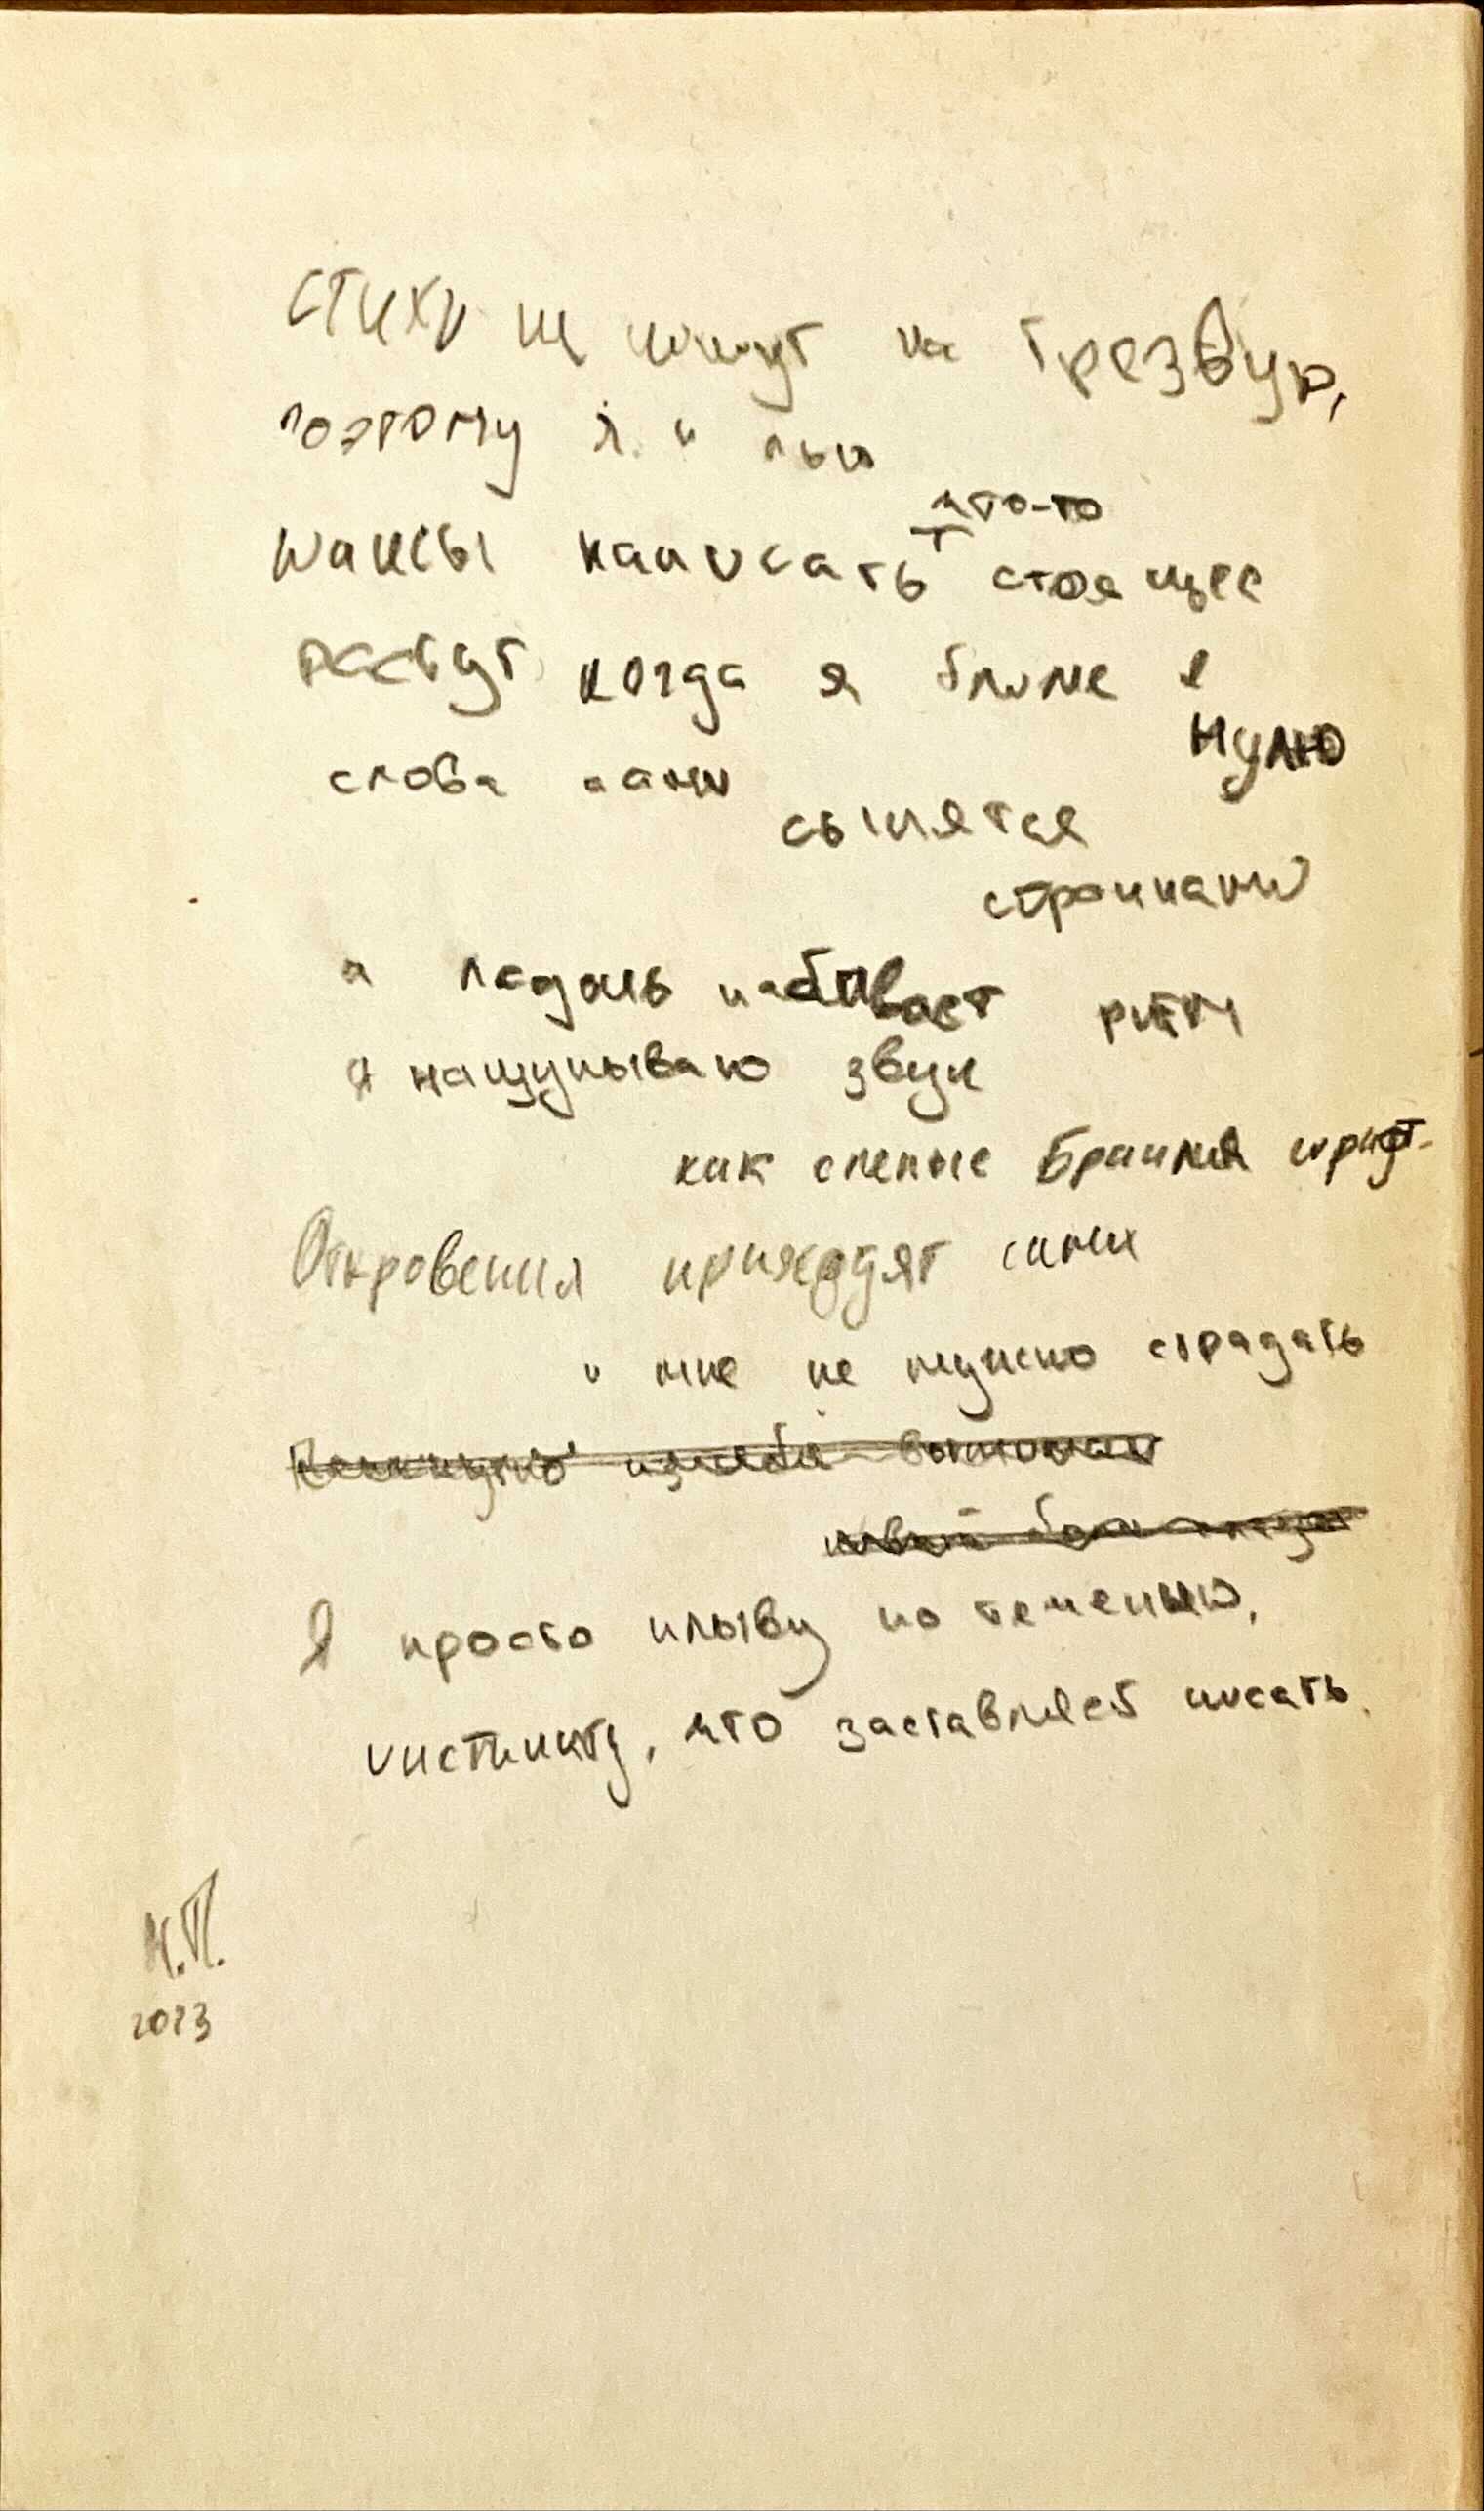 стихи не пишут на трезвую,
поэтому я и пью
шансы написать что-то стоящее
растут когда я ближе к
нулю
слова сами
сыпятся
строчками
а ладонь набивает ритм
я нащупываю звук
как слепые Брайля шрифт.
Откровения приходят сами
и мне не нужно страдать
Я просто плыву по течению,
инстинкту, что заставляет писать.
Н.П.
2023